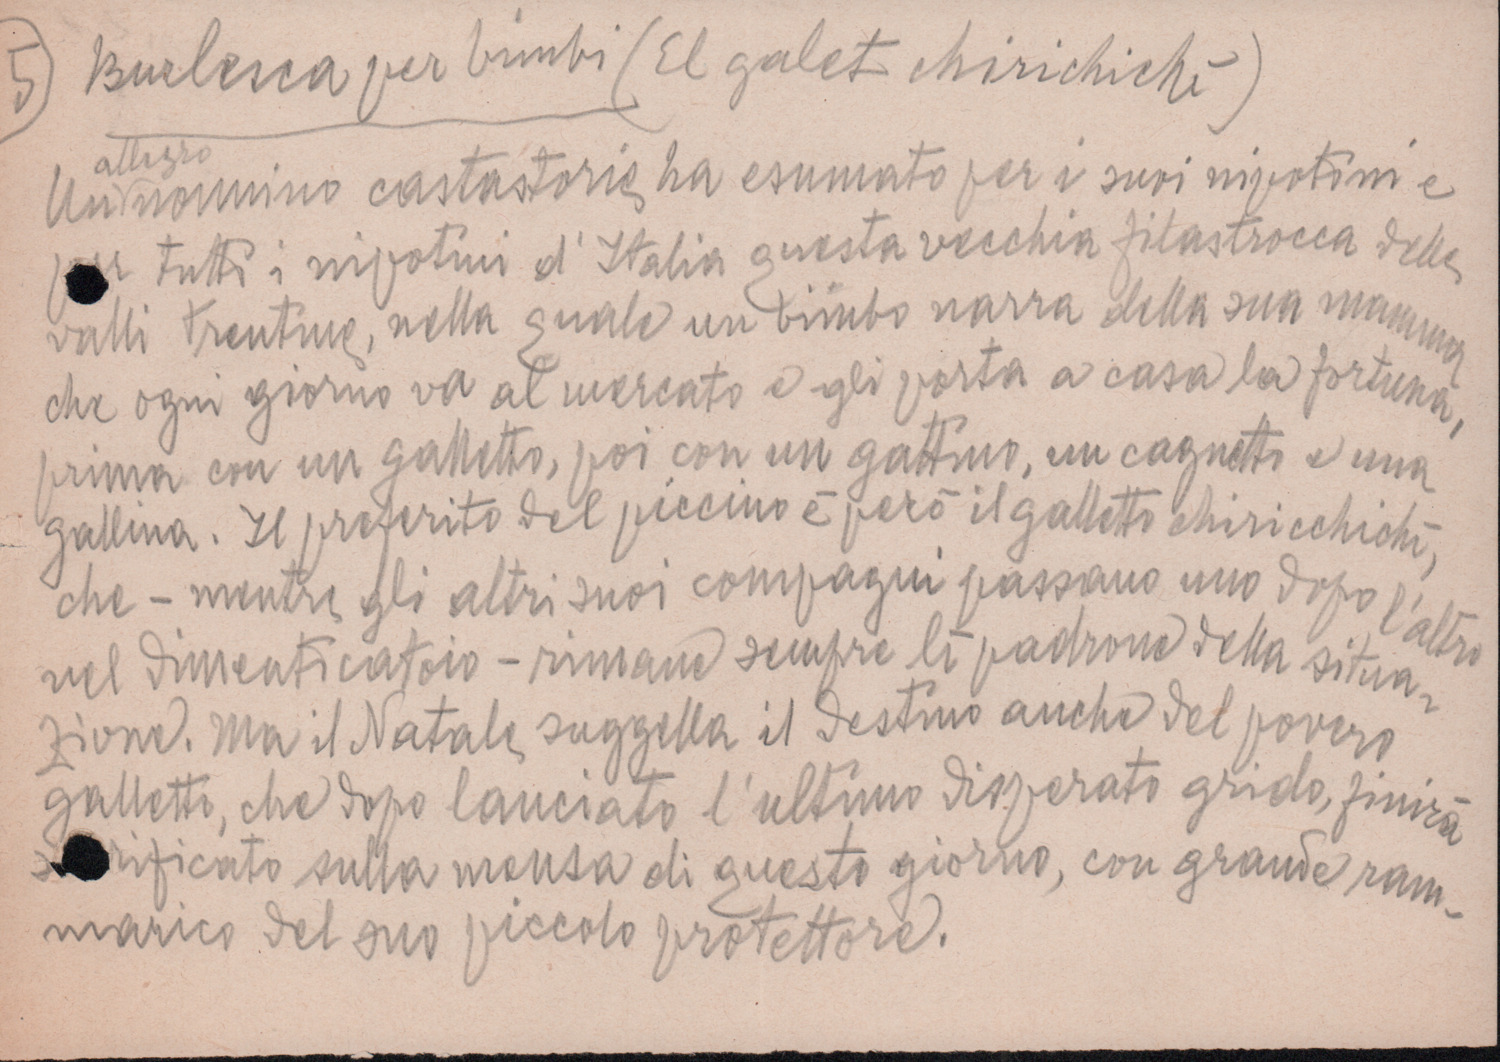 5) Burlesca per bimbi (El galet chirichichì)
allegro
Un nonnino castastorie ha esumato per i suoi nipotini e
per tutti i nipotini d'Italia questa vecchia filastrocca delle
valli Trentine, nella quale un bimbo narra della sua mamma
che ogni giorno va al mercato e gli porta a casa la fortuna,
prima con un galletto, poi con un gattino, un cagnetto e una
gallina. Il preferito del piccino è però il galletto chiricchichì,
che – mentre gli altri suoi compagni passano uno dopo l'altro
nel dimenticatoio – rimane sempre lì padrone della situa-
zione. Ma il Natale suggella il destino anche del povero
galletto, che dopo lanciato l'ultimo disperato grido, finirà
sacrificato sulla mensa di questo giorno, con grande ram-
marico del suo piccolo protettore.